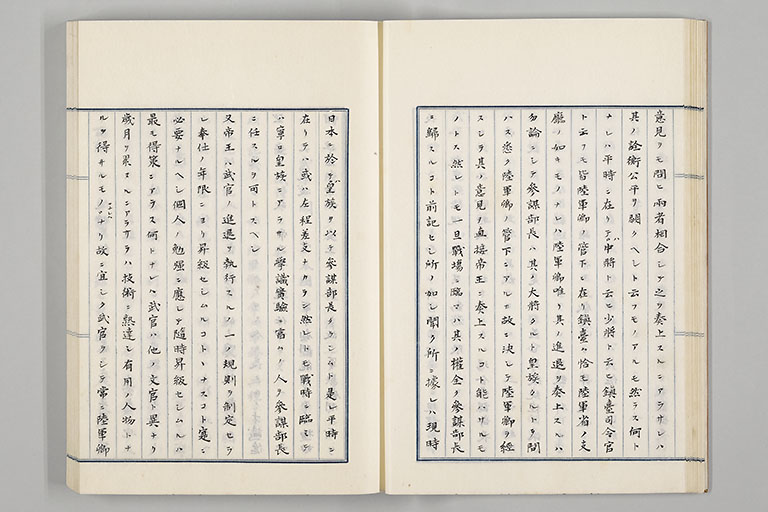 意見ヲモ問ヒ両者相合シテ之ヲ奏上スルニアラサレハ
其ノ詮衡公平ヲ闕クヘシト云フモノアルモ然ラス何ト
ナレハ平時ニ在リテハ中将ト云ヒ少将ト云ヒ鎮臺司令官
ト云フモ皆陸軍卿ノ管下ニ在リ鎮臺ハ恰モ陸軍省ノ支
廳ノ如キモノナレハ陸軍卿唯リ其ノ進退ヲ奏上スルハ
勿論ニシテ参謀部長ハ其ノ大将タルト皇族タルトヲ問
ハス悉ク陸軍卿ノ管下ニアルモ故ニ決シテ陸軍卿ヲ経
スシテ其ノ意見ヲ直接帝王ニ奏上スルコト能ハサルモ
ノトス然レトモ一旦戦場ニ臨マハ其ノ權全ク参謀部長
ニ歸スルコト前記セシ所ノ如シ聞ク所ニ據レハ現時
日本ニ於テ皇族ヲ以テ参謀部長タラシムト是レ平時ニ
在リテハ或ハ左程差支ナカラン然レトモ戦時ニ臨ミテ
ハ寧ロ皇族ニアラサル學識實驗ニ富ムノ人ヲ参謀部長
ニ任スルヲ可トスヘシ
又帝王ハ武官ノ進退ヲ執行スルノ一ノ規則ヲ制定セラ
レ奉仕ノ年限ニヨリ昇級セシムルコトヽナスコト寔ニ
必要ナルヘシ個人ノ勉強ニ應シテ隨時昇級セシムルハ
最モ得策ニアラス何トナレハ武官ハ他ノ文官ト異ナリ
歳月ヲ累ヌルニアラサレハ技術ニ熟達シ有用ノ人物トナ
ルヲ得サルモノナリ故ニ宜シク武官ヲシテ常ニ陸軍卿